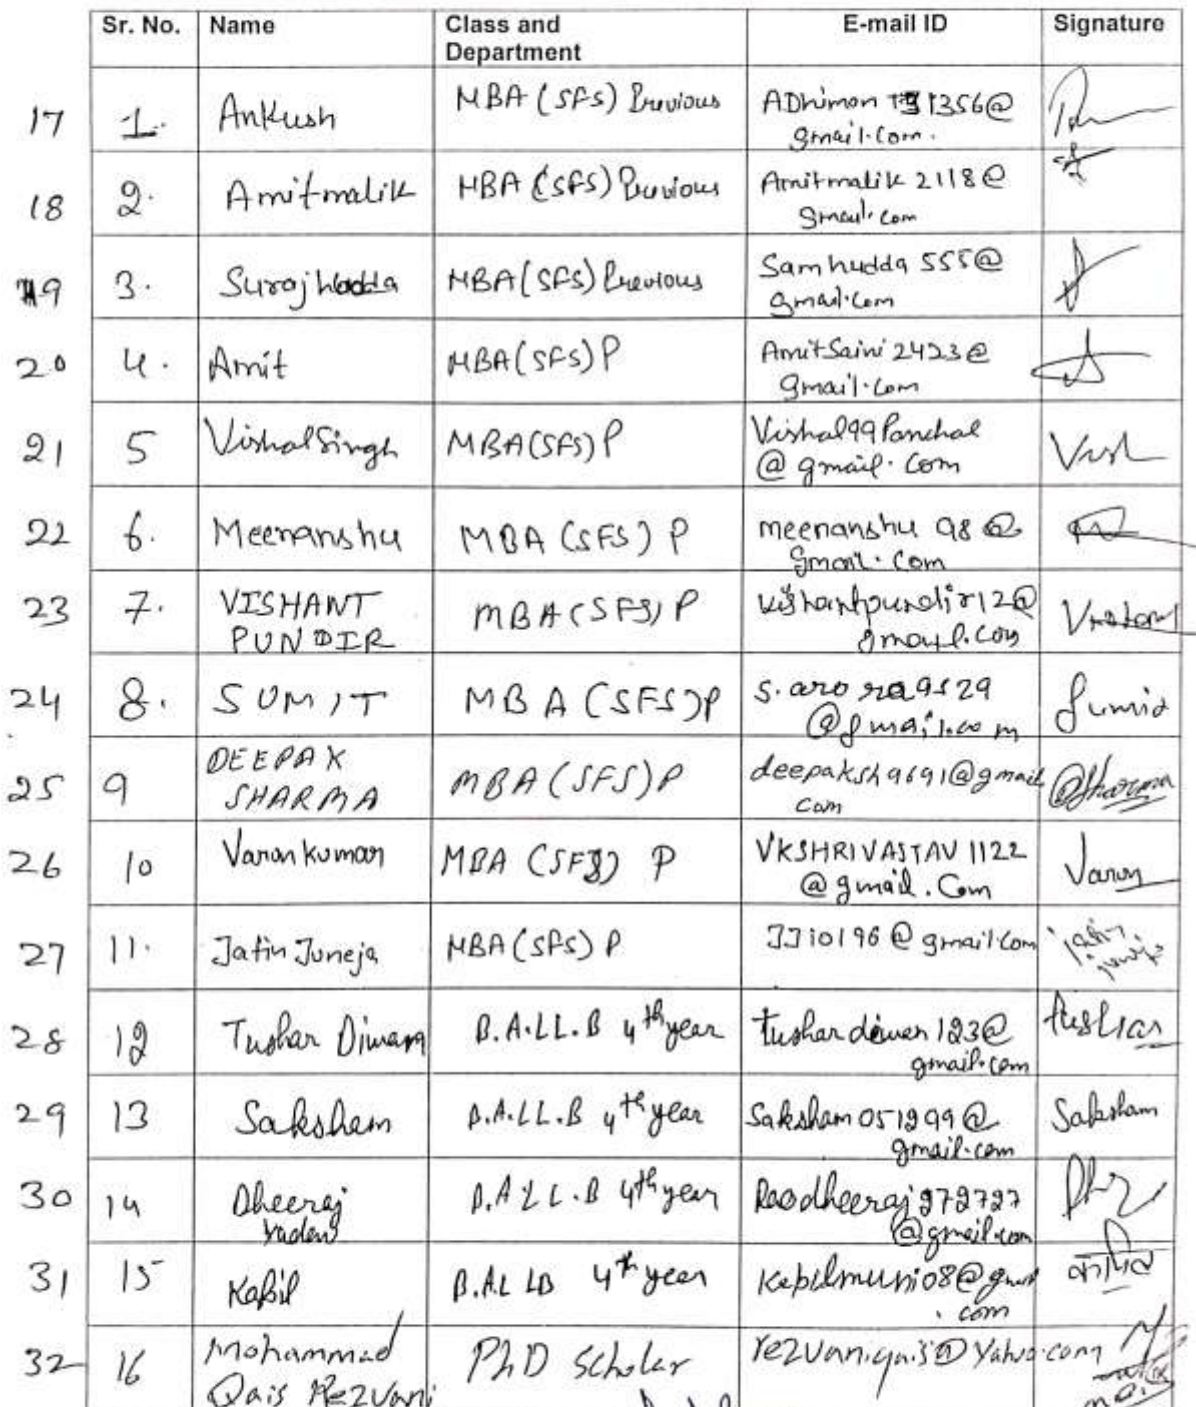 Sr. No. Name Class and Department E-mail ID Signature
17 1. Ankush MBA (SFS) Previous
gmail.com.
18 2. Amitmalik MBA (SFS) Previous Amitmalik 2118@
gmail.com
19 3. Suraj hudda MBA (SFS) Previous Samhudda 555@
gmail.com
20 4. Amit MBA (SFS) P AmitSaini 2423@
gmail.com
21 5 Vishal Singh MBA (SFS) P Vishal99Panchal
@ gmail.com
22 6. Meenanshu MBA (SFS) P meenanshu 98@
gmail.com
23 7. VISHANT MBA (SFS) P vishantpundir12@
PUNDIR
24 8. SUMIT MBA (SFS) P s.arora9529 Sumit
@gmail.com
25 9 DEEPAK MBA (SFS) P deepaksh9691@gmail
SHARMA com
26 10 Varun kumar MBA (SFS) P VKSHRIVASTAV 1122 Varun
@ gmail.Com
27 11. Jatin Juneja MBA (SFS) P JJ10196@gmail.com jatin
juneja
28 12 Tushar Diwan B.A.LL.B 4th year tushardiwan123@ tushar
gmail.com
29 13 Saksham B.A.LL.B 4th year Saksham051299@ Saksham
gmail.com
30 14 Dheeraj B.A.LL.B 4th year Raodheeraj272727
Yadav @gmail.com
31 15 Kapil B.A.LLB 4th year Kapilmuni08@gmail कपिल
.com
32 16 Mohammad PhD Scholar rezvaniqais@yahoo.com
Qais Rezvani